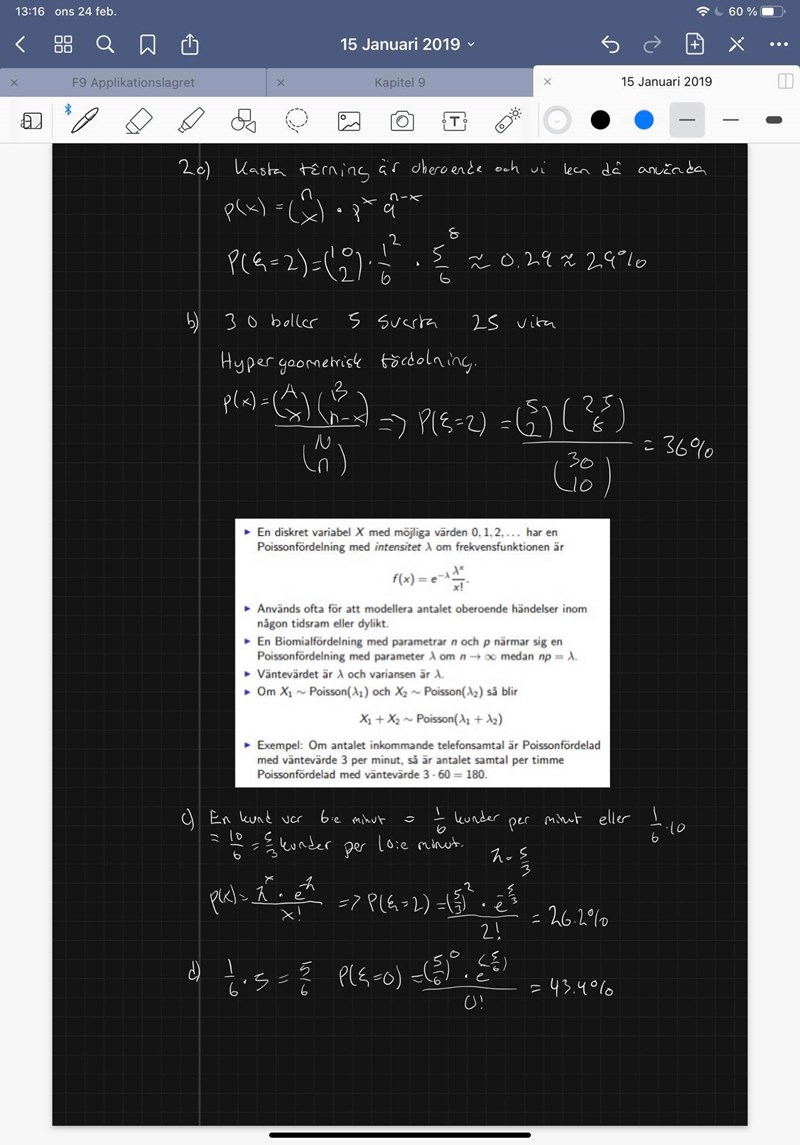 13:16 ons 24 feb.
60 %
15 Januari 2019
F9 Applikationslagret
Kapitel 9
15 Januari 2019
2a) Kasta tärning är oberoende och vi kan då använda
p(x) = (n x) · p^x q^{n-x}
P(ξ=2) = (10 2) · 1/6^2 · 5/6^8 ≈ 0.29 ≈ 29%
b) 30 bollar 5 svarta 25 vita
Hypergeometrisk fördelning.
p(x) = (A x)(B n-x) / (N n) => P(ξ=2) = (5 2)(25 8) / (30 10) = 36%
▸ En diskret variabel X med möjliga värden 0, 1, 2, . . . har en
Poissonfördelning med intensitet λ om frekvensfunktionen är
f(x) = e^{-λ} λ^x / x!.
▸ Används ofta för att modellera antalet oberoende händelser inom
någon tidsram eller dylikt.
▸ En Biomialfördelning med parametrar n och p närmar sig en
Poissonfördelning med parameter λ om n → ∞ medan np = λ.
▸ Väntevärdet är λ och variansen är λ.
▸ Om X₁ ∼ Poisson(λ₁) och X₂ ∼ Poisson(λ₂) så blir
X₁ + X₂ ∼ Poisson(λ₁ + λ₂)
▸ Exempel: Om antalet inkommande telefonsamtal är Poissonfördelad
med väntevärde 3 per minut, så är antalet samtal per timme
Poissonfördelad med väntevärde 3 · 60 = 180.
c) En kund var 6:e minut = 1/6 kunder per minut eller 1/6 · 10
= 10/6 = 5/3 kunder per 10:e minut. λ = 5/3
p(x) = λ^x · e^{-λ} / x! => P(ξ=2) = (5/3)^2 · e^{-5/3} / 2! = 26.2%
d) 1/6 · 5 = 5/6 P(ξ=0) = (5/6)^0 · e^{(-5/6)} / 0! = 43.4%